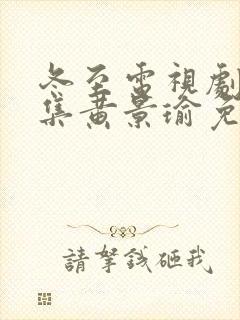 冬至電視劇
集黃景瑜免
請拏錢砸我